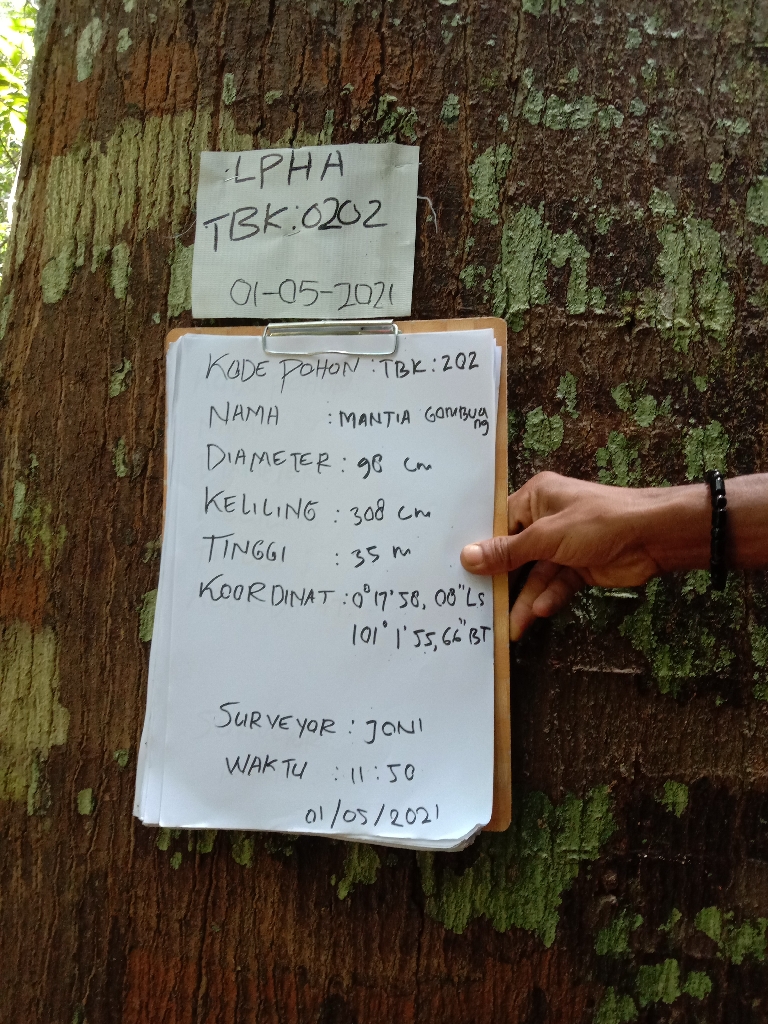 LPHA
TBK:0202
01-05-2021
KODE POHON : TBK : 202
NAMA : MANTIA GOMBUANG
DIAMETER : 98 cm
KELILING : 308 cm
TINGGI : 35 m
KOORDINAT : 0° 17' 58, 08" LS
101° 1' 55, 66" BT
SURVEYOR : JONI
WAKTU : 11 : 50
01/05/2021